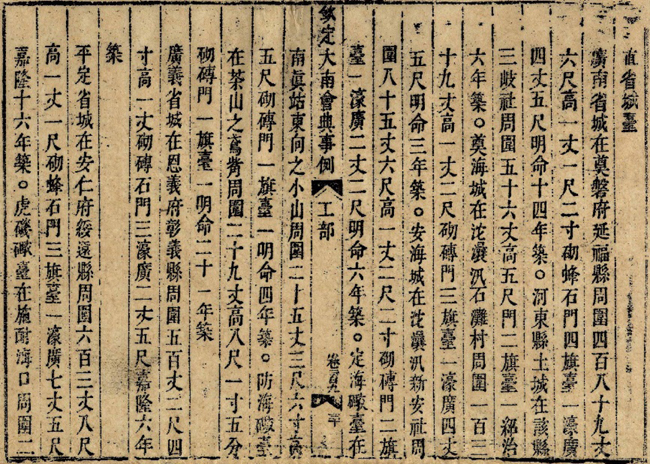 直省城臺
廣南省城在奠磐府延福縣周圍四百八十九丈
六尺高一丈一尺二寸砌蜂石門四旗臺一濠廣
四丈五尺明命十四年築〇河東縣土城在該縣
三岐社周圍五十六丈高五尺門二旗臺一紹治
六年築〇奠海城在沱㶞汛石灘村周圍一百三
十九丈高一丈二尺砌磚門三旗臺一濠廣四丈
五尺明命三年築〇安海城在沱㶞汛新安社周
圍八十五丈六尺高一丈二尺二寸砌磚門二旗
臺一濠廣二丈二尺明命六年築〇定海礮臺在
欽定大南會典事例 工部
南眞站東向之小山周圍二十五丈三尺六寸高
五尺砌磚門一旗臺一明命四年築〇防海礮臺
在茶山之周圍二十九丈高八尺一寸五分
砌磚門一旗臺一明命二十一年築
廣義省城在思義府彰義縣周圍五百丈二尺四
寸高一丈砌磚石門三濠廣二丈五尺嘉隆六年
築
平定省城在安仁府綏遠縣周圍六百三丈八尺
高一丈一尺砌蜂石門三旗臺一濠廣七丈五尺
嘉隆十六年築〇虎磯礮臺在施耐海口周圍二